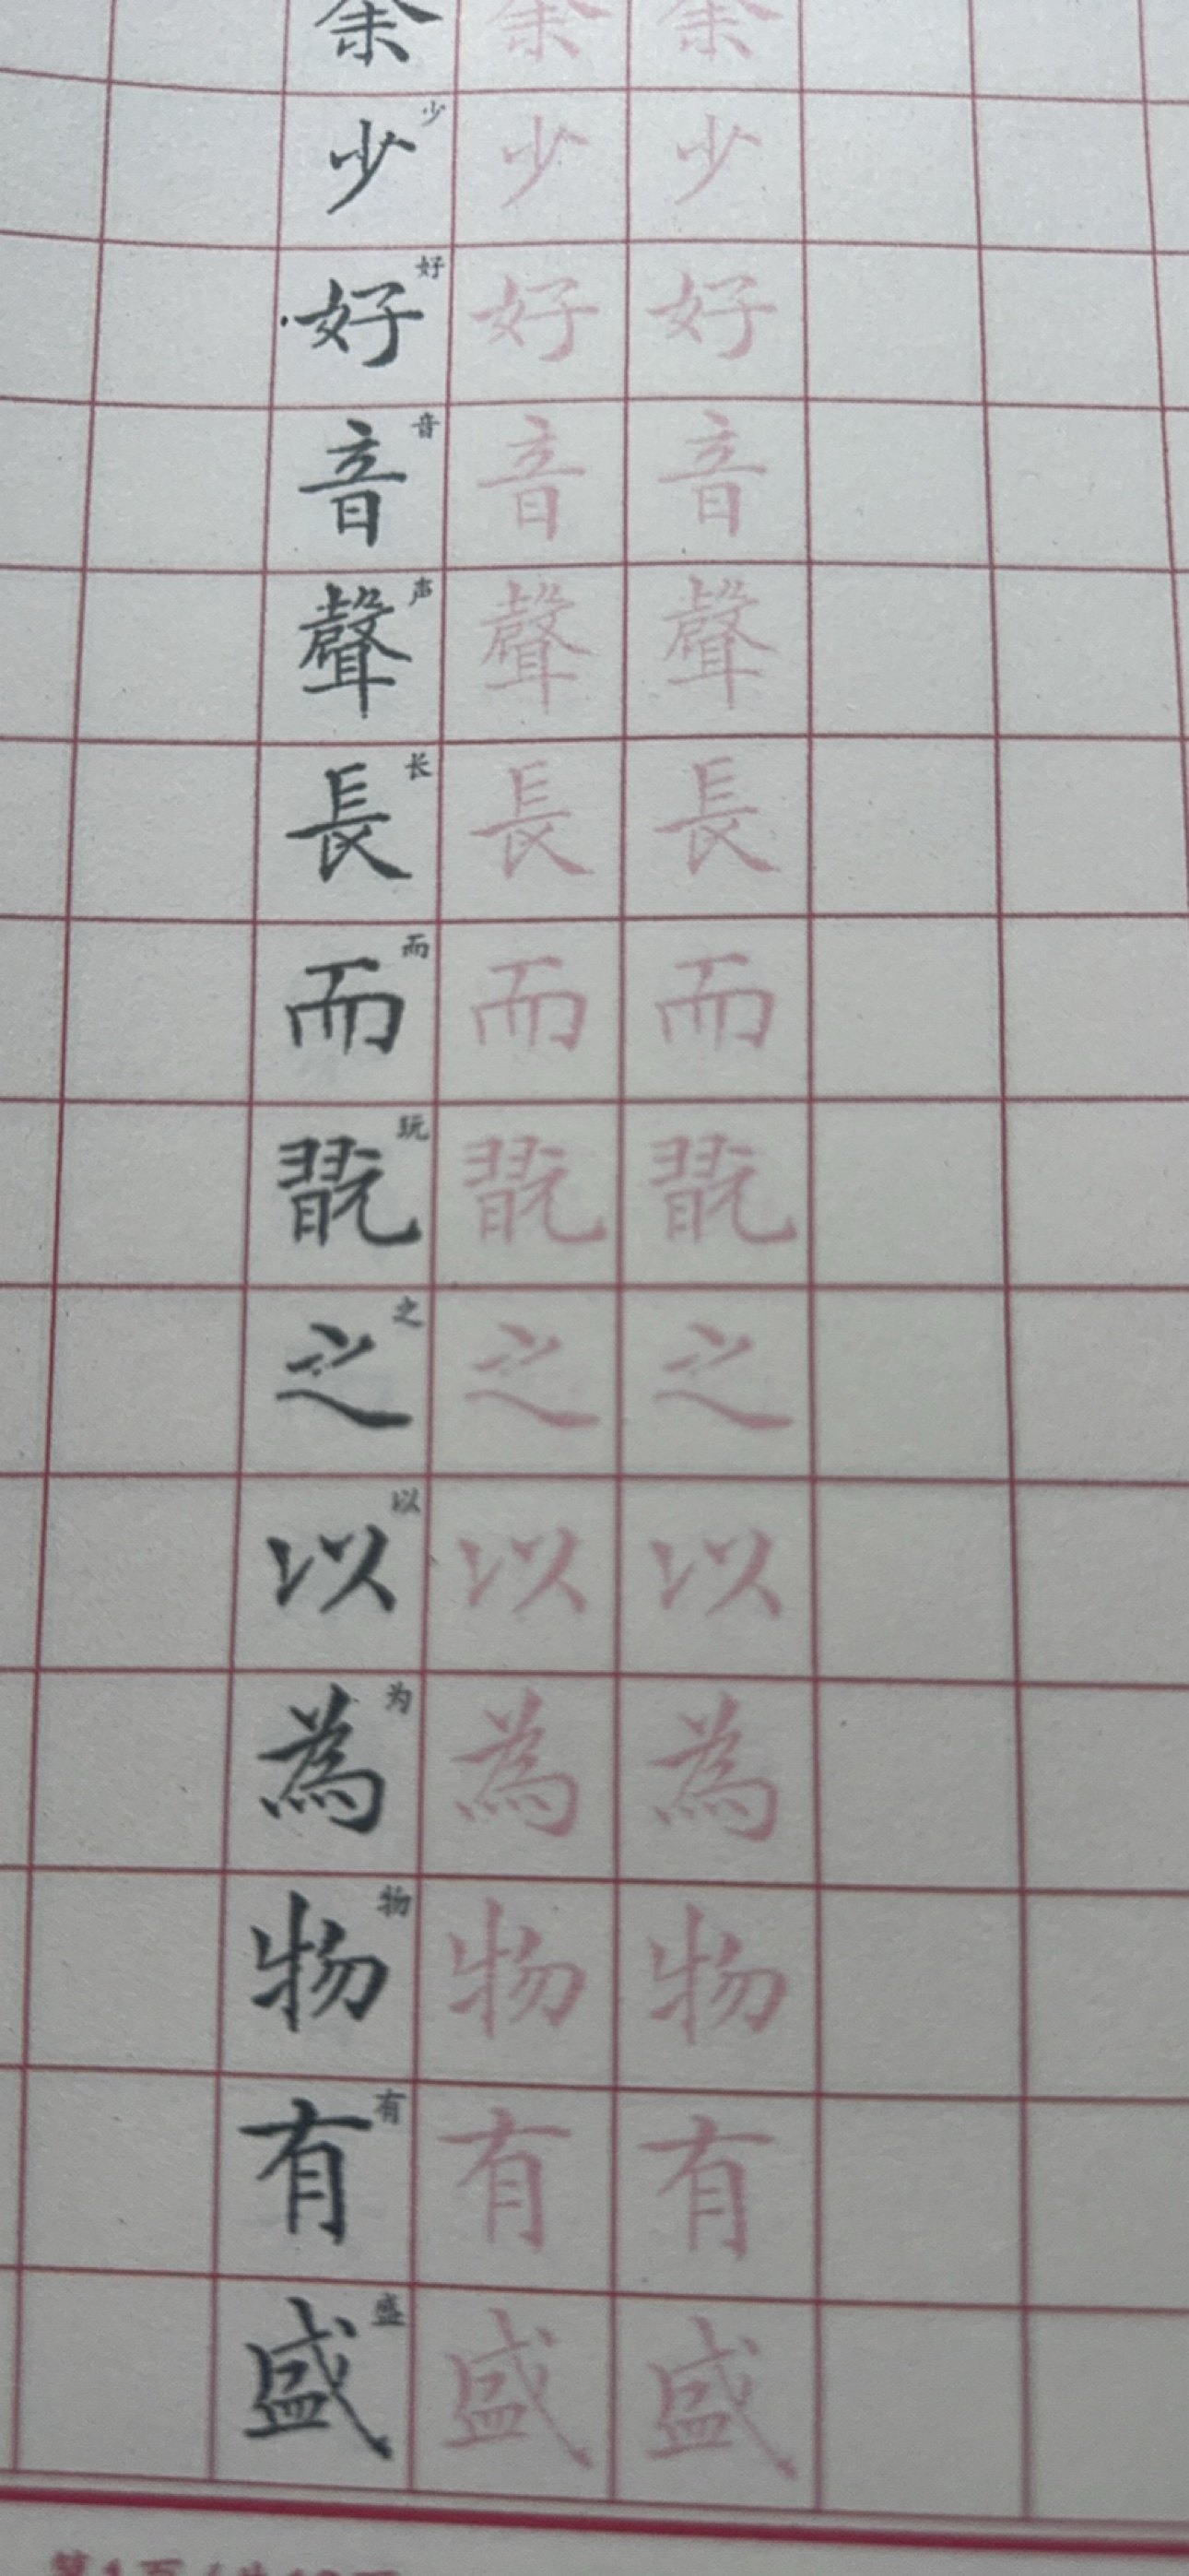 余少好音聲長而翫之以為物有盛
少好音声长而玩之以为物有盛
余少好音聲長而翫之以為物有盛
余少好音聲長而翫之以為物有盛